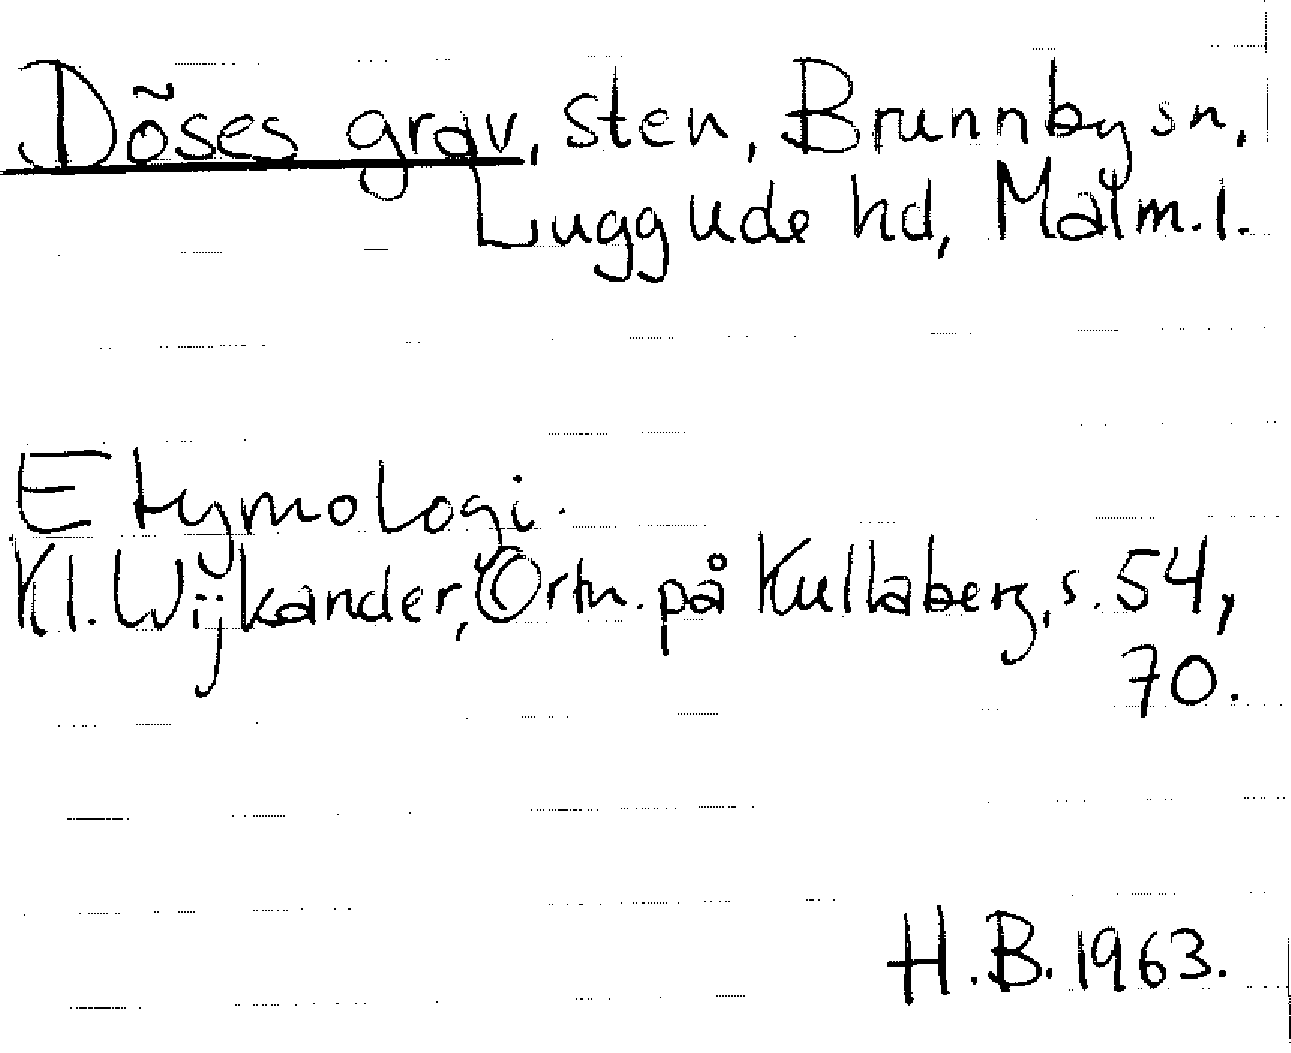 Döses grav, sten, Brunnby sn,
Luggude hd, Malm. l.
Etymologi.
Kl. Wijkander, Ortn. på Kullaberg, s. 54,
70.
H.B. 1963.